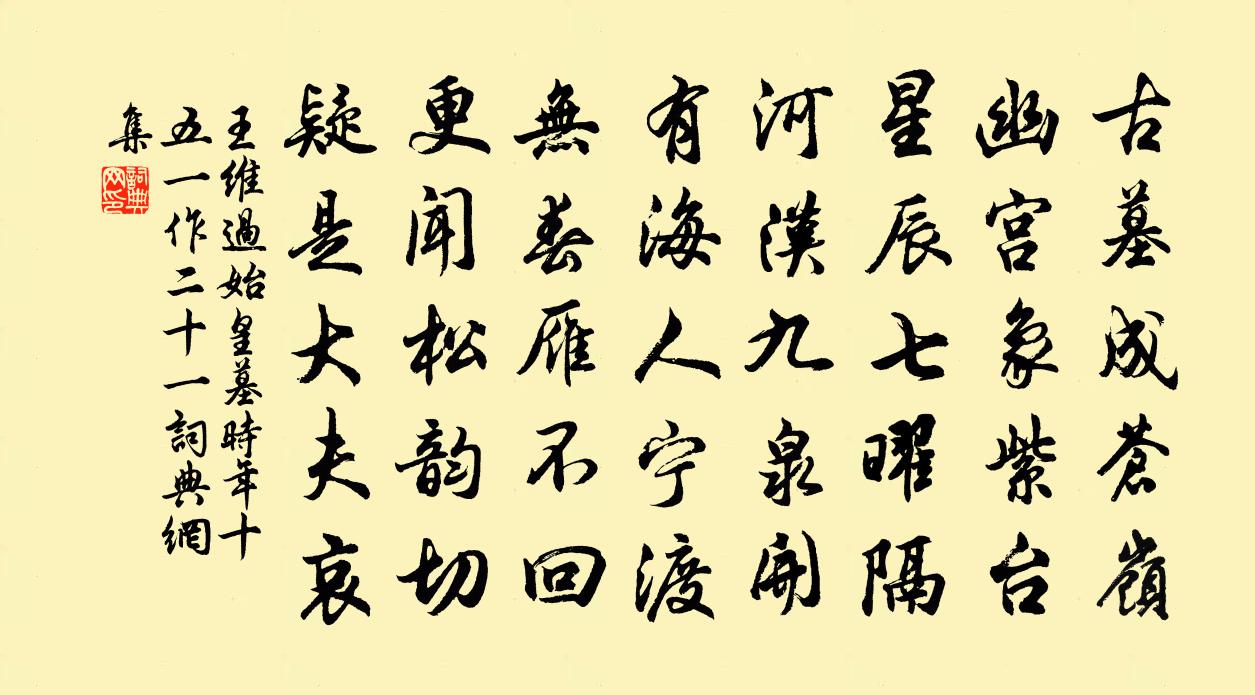 古墓成苍嶺
幽宫象紫台
星辰七曜隔
河漢九泉開
有海人宁渡
無春雁不回
更闻松韵切
疑是大夫哀
王維過始皇墓時年十
五一作二十一詞典網
集
詞典网印